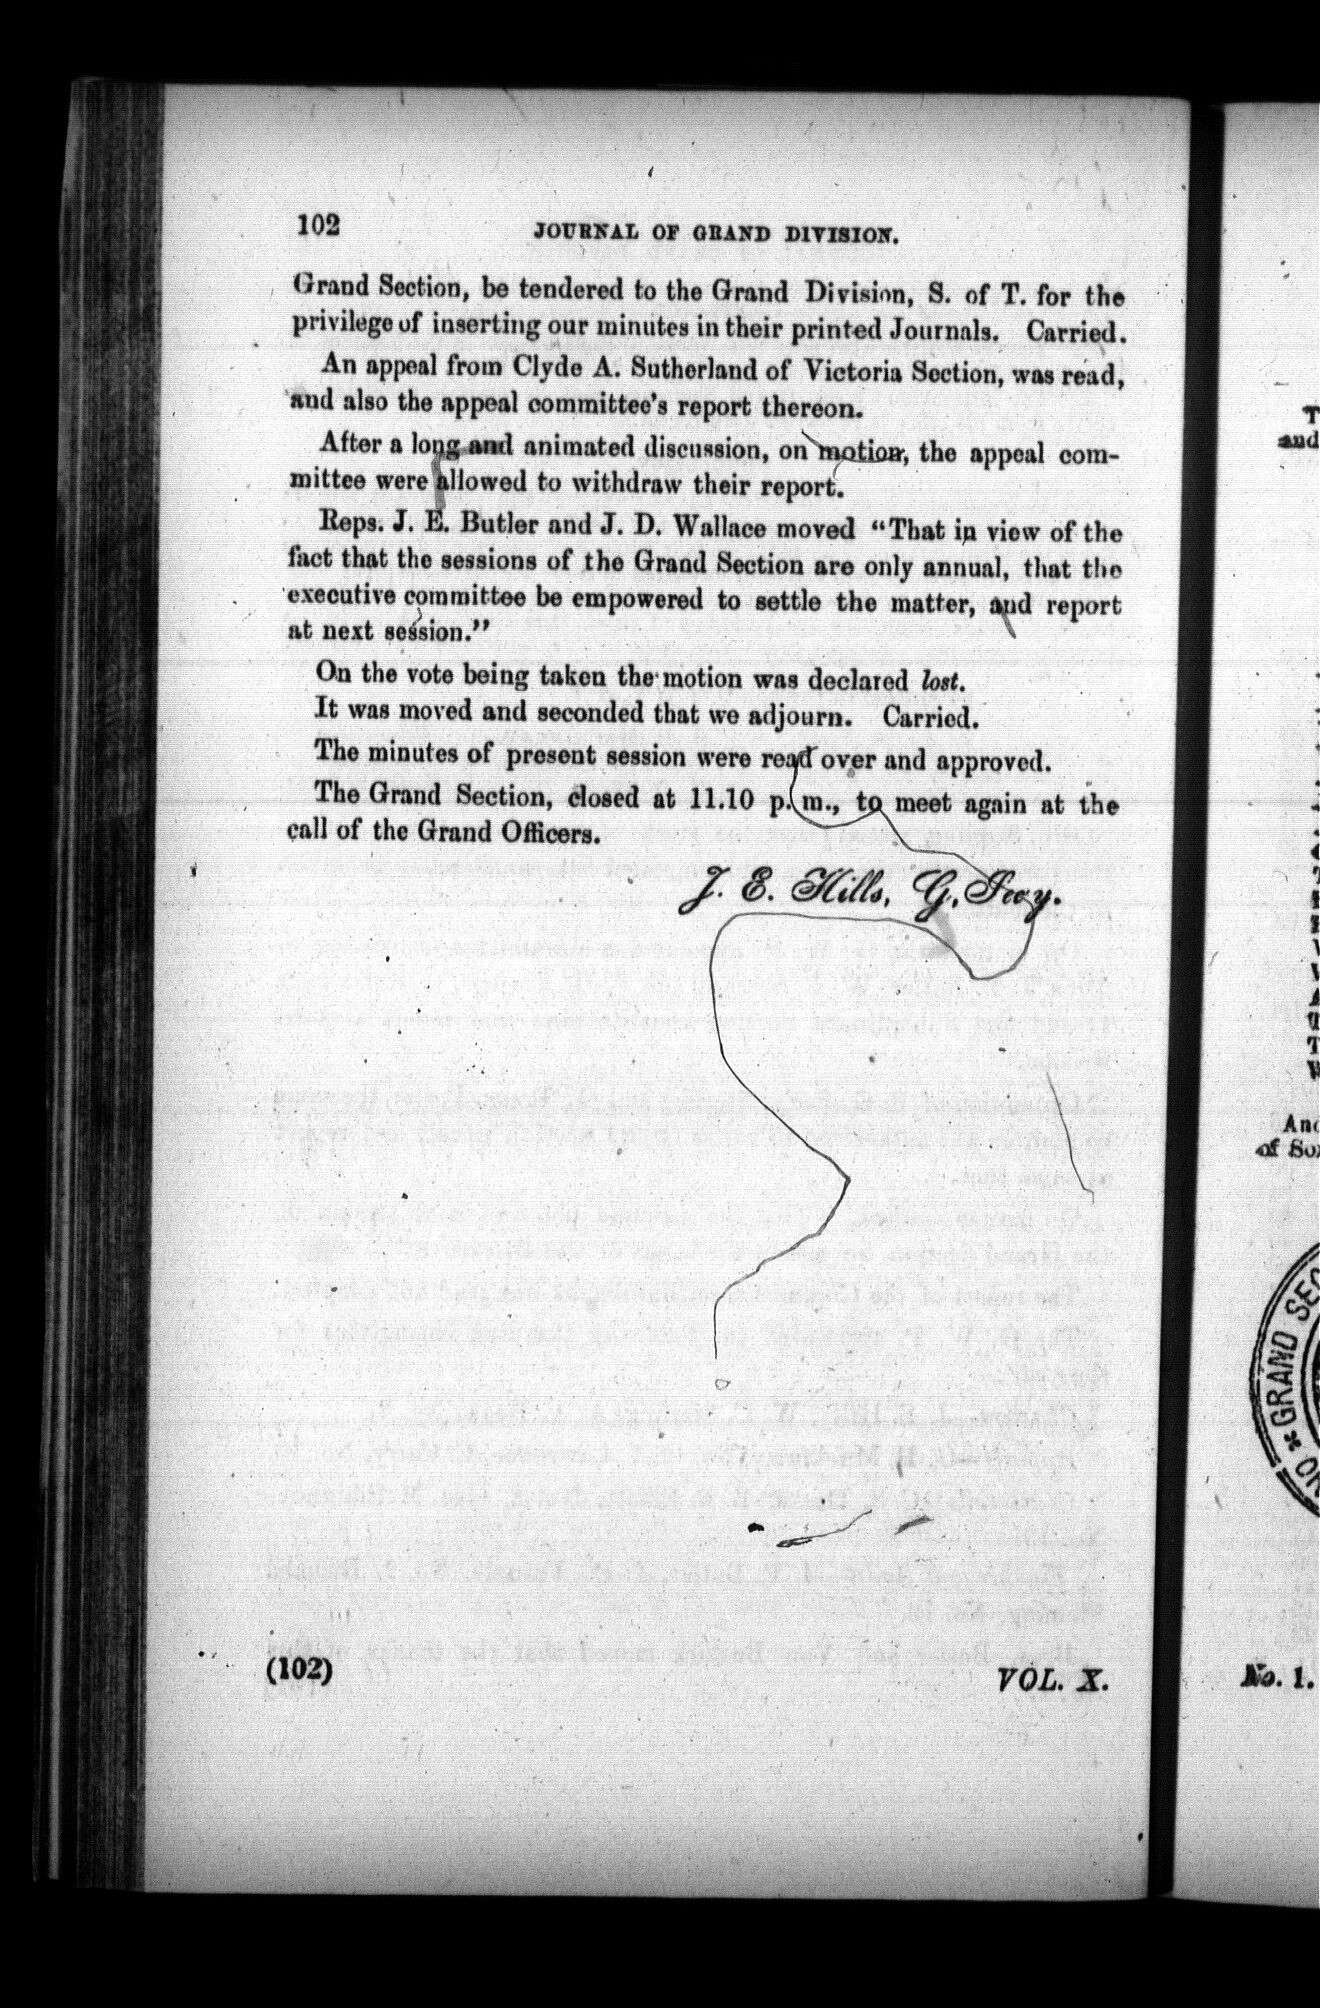 102 JOURNAL OF GRAND DIVISION.
Grand Section, be tendered to the Grand Division, S. of T. for the
privilege of inserting our minutes in their printed Journals. Carried.
An appeal from Clyde A. Sutherland of Victoria Section, was read,
and also the appeal committee's report thereon.
After a long and animated discussion, on motion, the appeal com-
mittee were allowed to withdraw their report.
Reps. J. E. Butler and J. D. Wallace moved "That in view of the
fact that the sessions of the Grand Section are only annual, that the
executive committee be empowered to settle the matter, and report
at next session."
On the vote being taken the motion was declared lost.
It was moved and seconded that we adjourn. Carried.
The minutes of present session were read over and approved.
The Grand Section, closed at 11.10 p. m., to meet again at the
call of the Grand Officers.
J. E. Hills, G. Secy.
(102) VOL. X.
and
of
GRAND
No. 1.